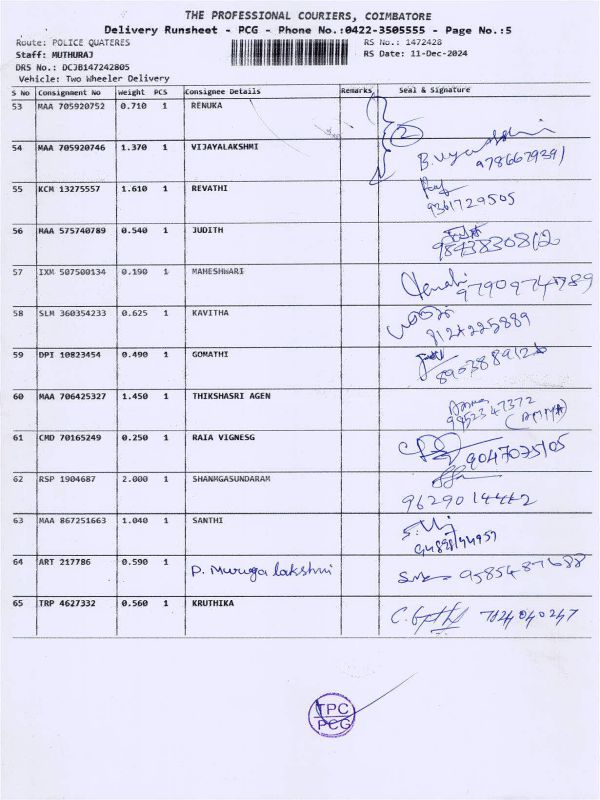 THE PROFESSIONAL COURIERS, COIMBATORE
Delivery Runsheet - PCG - Phone No.:0422-3505555 - Page No.:5
Route: POLICE QUATERES RS No.: 1472428
Staff: MUTHURAJ RS Date: 11-Dec-2024
DRS No.: DCJB147242805
Vehicle: Two Wheeler Delivery
S No Consignment No Weight PCS Consignee Details Remarks Seal & Signature
53 MAA 705920752 0.710 1 RENUKA
2
54 MAA 705920746 1.370 1 VIJAYALAKSHMI
9786679391
55 KCM 13275557 1.610 1 REVATHI
9361729505
56 MAA 575740789 0.540 1 JUDITH
9843830812
57 IXM 507500134 0.190 1 MAHESHWARI
58 SLM 360354233 0.625 1 KAVITHA
8124225889
59 DPI 10823454 0.490 1 GOMATHI
60 MAA 706425327 1.450 1 THIKSHASRI AGEN
Amma
9952347372
(AMMA)
61 CMD 70165249 0.250 1 RAIA VIGNESG
9047075105
62 RSP 1904687 2.000 1 SHANMGASUNDARAM
9629014442
63 MAA 867251663 1.040 1 SANTHI
64 ART 217786 0.590 1 P. Muruga lakshmi 9585487688
65 TRP 4627332 0.560 1 KRUTHIKA 7824040247
TPC
PCG